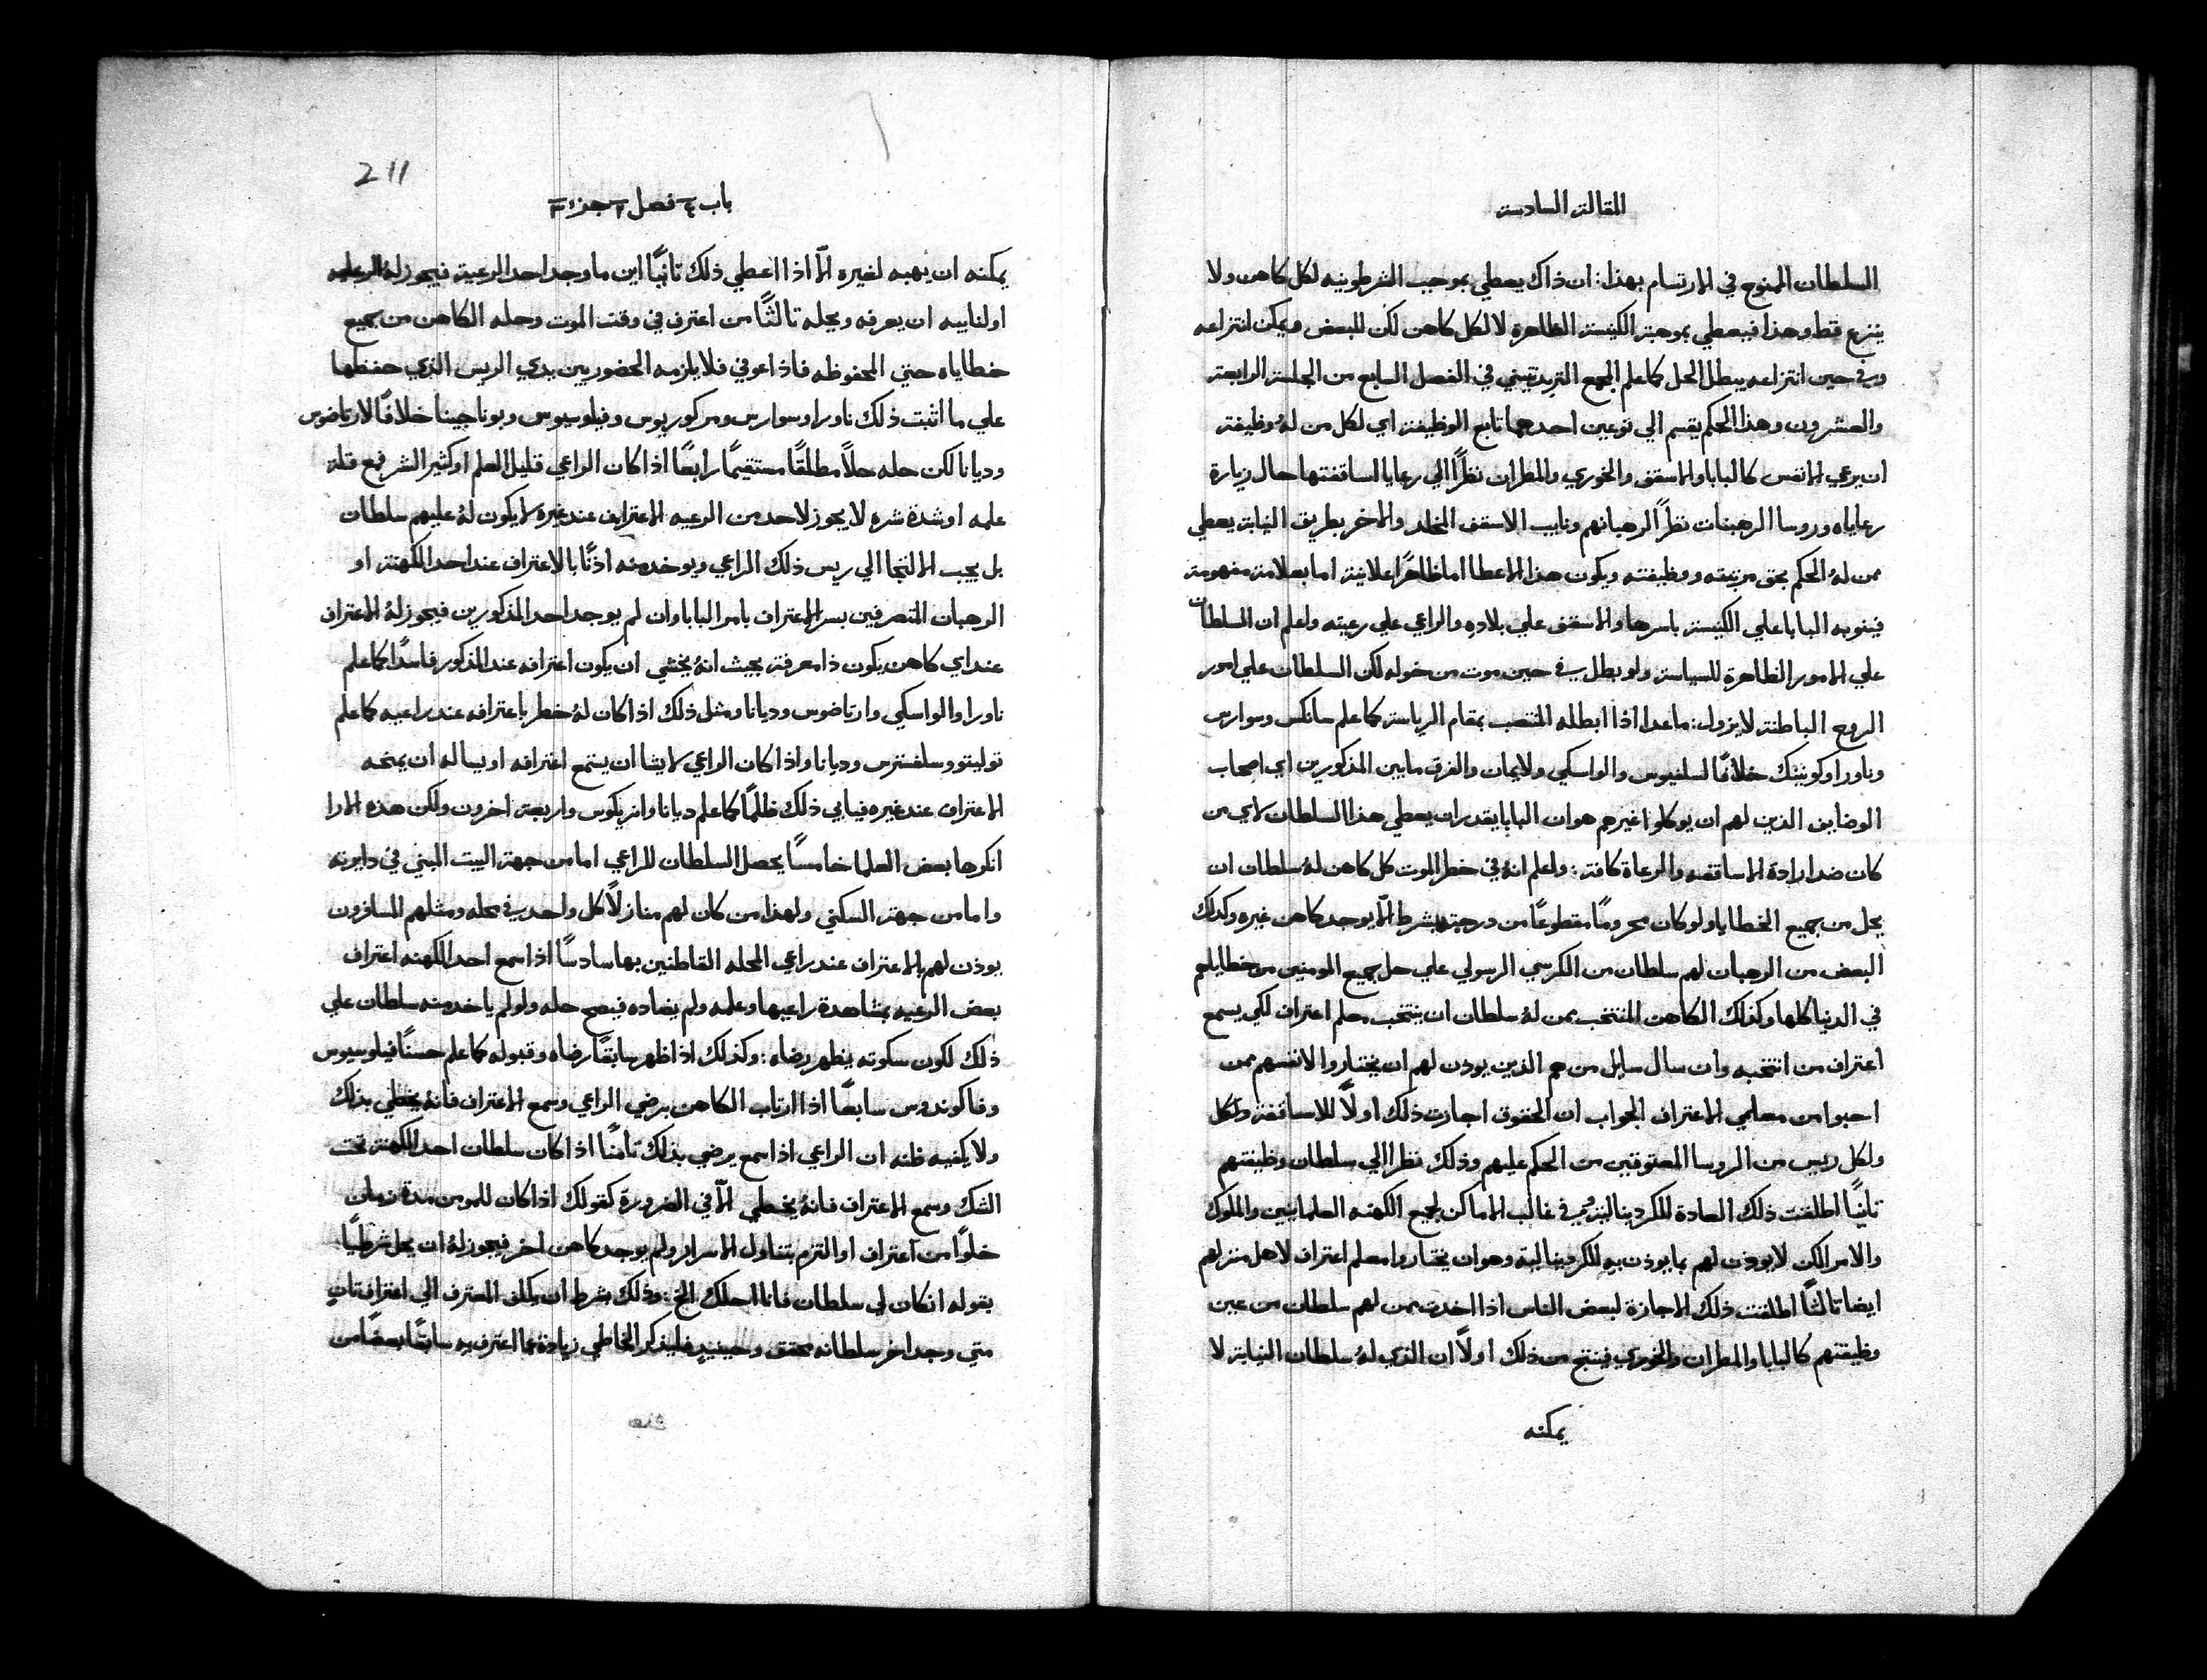 المقالة السادسة
السلطان الممنوح في الارتسام بهذا: ان ذاك يعطي بموجب الشرطونيه لكل كاهن ولا
ينزع قط وهذا فيعطي بموجبة الكنيسة الظاهرة لا لكل كاهن لكن للبعض ويمكن انتزاعه
وفي حين انتزاعه يبطل الحل كما علم المجمع التريدنتيني في الفصل السابع من الجلسة الرابعة
والعشرون وهذا الحكم يقسم الي نوعين احدهما تابع الوظيفة اي لكل من لهُ وظيفة
ان يرعي الانفس كالبابا والاسقف والخوري والمطران نظرًا الي رعايا اساقفتها حال زيارة
رعاياه وروسا الرهبنات نظرًا لرهبانهم ونايب الاسقف المخلد والاخر بطريق النيابة يعطي
ممن لهُ الحكم بحق مرتبته ووظيفته ويكون هذا الاعطا اما ظاهرًا علانية اما بعلامة مفهومة
فينوبه البابا علي الكنيسة باسرها والاسقف علي بلاده والراعي علي رعيته واعلم ان السلطان
علي الامور الظاهرة للسياسة ولو بطل في حين موت من خوله لكن السلطان علي امور
الروح الباطنة لا يزول: ما عدا اذا ابطله المنتصب بمقام الرياسة كما علم سانكس وسوارس
وناورا وكونينك خلافًا لسلفيوس والواسكي ولايمان والفرق ما بين المذكورين اي اصحاب
الوضايف الذين لهم ان يوكلوا غيرهم هو ان البابا يقدر ان يعطي هذا السلطان لاي من
كان ضد ارادة الاساقفه والرعاة كافة: واعلم انهُ في خطر الموت كل كاهن لهُ سلطان ان
يحل من جميع الخطايا ولو كان محرومًا مقطوعًا من درجته بشرط الّا يوجد كاهن غيره وكذلك
البعض من الرهبان لهم سلطان من الكرسي الرسولي علي حل جميع المومنين من خطاياهم
في الدنيا كلها وكذلك الكاهن المنتخب ممن لهُ سلطان ان ينتخب معلم اعتراف لكي يسمع
اعتراف من انتخبه وان سال سايل من هم الذين يوذن لهم ان يختاروا لانفسهم ممن
احبوا من معلمي الاعتراف الجواب ان الحقوق اجازت ذلك اولًا للاساقفة ولكل
ولكل ريس من الروسا المعتوقين من الحكم عليهم وذلك نظرا الي سلطان وظيفتهم
ثانيًا اطلقت ذلك العادة للكردينالية في غالب الاماكن لجميع الكهنه العلمانيين والملوك
والامرا لكن لا يوذن لهم بما يوذن به للكردينالية وهو ان يختاروا معلم اعتراف لاهل منزلهم
ايضا ثالثًا اطلقت ذلك الاجازة لبعض الناس اذا اخذت ممن لهم سلطان من عين
وظيفتهم كالبابا والمطران والخوري فينتج من ذلك اولًا ان الذي لهُ سلطان النيابة لا
يمكنه
211
باب ٤ فصل ٢ جزء ٣
يمكنه ان يهبه لغيره الّا اذا اعطي ذلك ثانيًا اين ما وجد احد الرعية فيجوز لهُ لراعيه
او لنايبه ان يعرفه ويحله ثالثًا من اعترف في وقت الموت وحله الكاهن من جميع
خطاياه حتي المحفوظه فاذا عوفي فلا يلزمه الحضور بين يدي الريس الذي حفظها
علي ما اثبت ذلك ناورا وسوارس ومركوريوس وفيلوسيوس وبوناجينا خلافًا لارتاضوس
وديانا لكن حله حلًا مطلقًا مستقيمًا رابعًا اذا كان الراعي قليل العلم او كثير الشر فمع قلة
علمه او شدة شره لا يجوز لاحد من الرعيه الاعتراف عند غيره لا يكون لهُ عليهم سلطان
بل يجب الالتجا الي ريس ذلك الراعي ويوخذ منه اذنًا بالاعتراف عند احد الكهنة او
الرهبان المتصرفين بسر الاعتراف بامر البابا وان لم يوجد احد المذكورين فيجوز لهُ الاعتراف
عند اي كاهن يكون ذا معرفة بحيث انهُ يخشي ان يكون اعترافه عند المذكور فاسدًا كما علم
ناورا والواسكي وارتاضوس وديانا ومثل ذلك اذا كان لهُ خطر باعترافه عند راعيه كما علم
توليتو وسلفسترس وديانا واذا كان الراعي لا يشا ان يستمع اعترافه او يساله ان يمنحه
الاعتراف عند غيره فيابي ذلك ظلمًا كما علم ديانا وانريكوس واربعة اخرون ولكن هذه الارا
انكرها بعض العلما خامسًا يحصل السلطان للراعي اما من جهة البيت المبني في دايرته
واما من جهة السكني ولهذا من كان لهم منازلًا كل واحد في محله ومثلهم المسافرون
يوذن لهم بالاعتراف عند راعي المحله القاطنين بها سادسًا اذا سمع احد الكهنه اعتراف
بعض الرعيه بمشاهدة راعيها وعلمه ولم يضاده فيصح حله ولو لم ياخذ منه سلطان علي
ذلك لكون سكوته يظهر رضاه: وكذلك اذا ظهر سابقًا رضاه وقبوله كما علم حسنًا فيلوسيوس
وفاكوندوس سابعًا اذا ارتاب الكاهن برضي الراعي وسمع الاعتراف فانهُ يخطي بذلك
ولا يكفيه ظنه ان الراعي اذا سمع يرضي بذلك ثامنًا اذا كان سلطان احد الكهنة تحت
الشك وسمع الاعتراف فانهُ يخطي الّا في الضرورة كقولك اذا كان للمومن مدة زمان
خلوًا من اعتراف او التزم بتناول الاسرار ولم يوجد كاهن اخر فيجوز لهُ ان يحل شرطيًا
بقوله ان كان لي سلطان فانا احلك الخ: وذلك بشرط ان يكلف المعترف الي اعتراف ثانٍ
متي وجد اخر سلطانه محقق وحينيدٍ فليذكر الخاطي زيادة عما اعترف به سابقًا بعضًا من